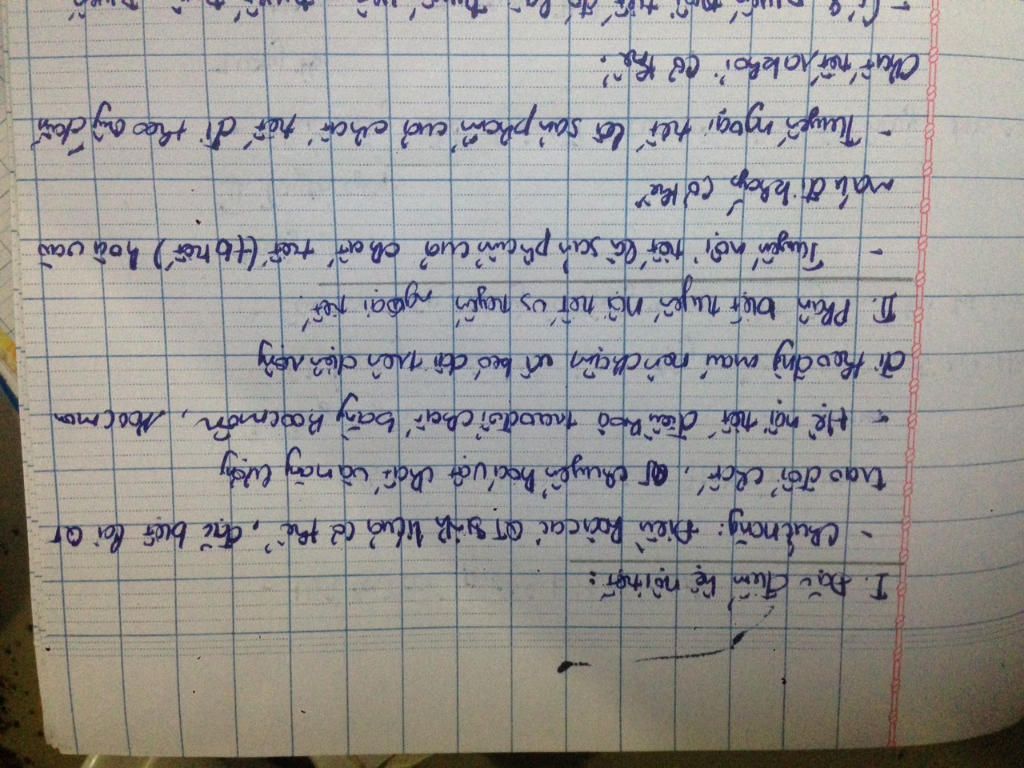 I. Đặc điểm hệ nội tiết:
- Chức năng: Điều hoà các QT sinh lí của cơ thể, đặc biệt là QT
trao đổi chất, QT chuyển hoá vật chất và năng lượng
- Hệ nội tiết điều hoà trao đổi chất bằng hoocmôn, Hoocmon
đi theo đường máu nên chậm và kéo dài trên diện rộng
II. Phân biệt tuyến nội tiết vs tuyến ngoại tiết
- Tuyến nội tiết là sản phẩm của chất tiết (tb tiết) hoà vào
máu đi khắp cơ thể
- Tuyến ngoại tiết là sản phẩm của chất tiết đi theo ống dẫn
chất tiết ra khỏi cơ thể.